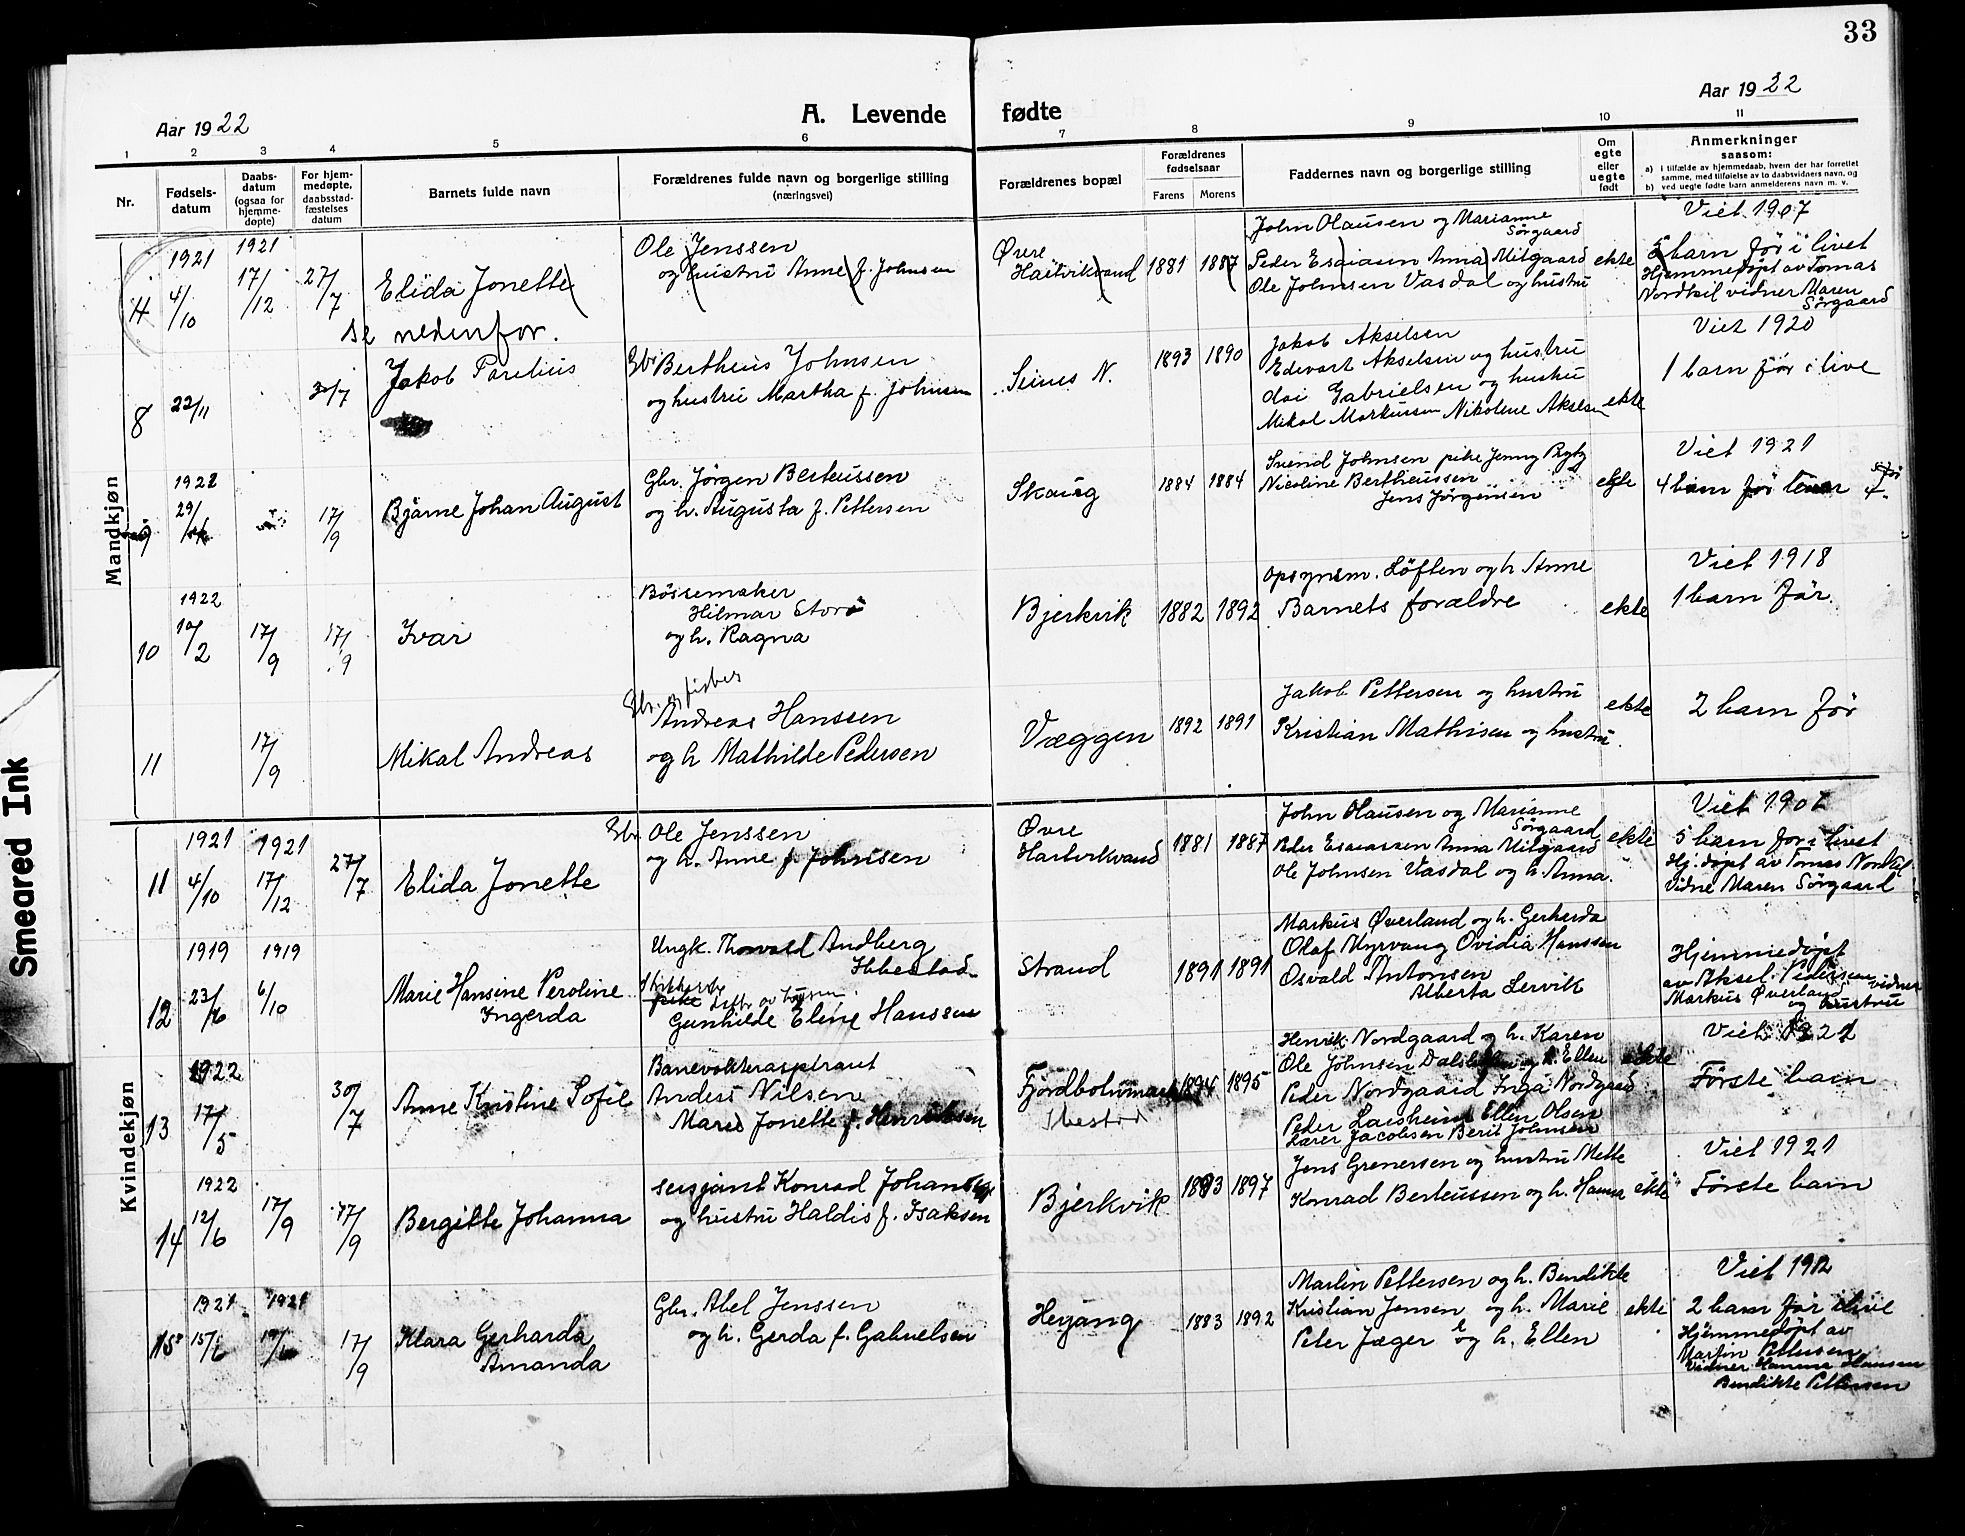 33
Aar 1922
A. Levende fødte
Aar 1922
1 2 3 4 5 6 7 8 9 10 11
Nr.
Fødsels-
datum
Daabs-
datum
(ogsaa for
hjemme-
døpte)
For hjem-
medøpte,
daabsstad-
fæstelses
datum
Barnets fulde navn
Forældrenes fulde navn og borgerlige stilling
(næringsvei)
Forældrenes bopæl
Forældrenes
fødselsaar
Farens Morens
Faddernes navn og borgerlige stilling
Om
egte
eller
uegte
født
Anmerkninger
saasom:
a) I tilfælde av hjemmedaab, hvem der har forrettet
samme, med tilføielse av to daabsvidners navn, og
b) ved uegte fødte barn anmelderens navn m. v.
Mandkjøn
1921
4/10
1921
17/12
27/7
Elida Jonette
Ole Jenssen
og hustru Anne f. Johnsen
Øvre
Hartvikvand
1881 1887
John Olausen og Marianne
Sørgaard
Peder Esaiasen Anna Mitgaard
Ole Johnsen Vasdal og hustru
ekte
Viet 1907
5 barn før i livet
Hjemmedøpt av Tomas
Nordkil vidner Maren
Sørgaard
se nedenfor.
8
22/11
30/7
Jakob Parelius
Gbr Bertheus Johnsen
og hustru Martha f. Johnsen
Seines N.
1893 1890
Jakob Akselsen
Edevart Akselsen og hustru
Gabrielsen og hustru
Mikal Markussen Nikoline Akselsen
ekte
Viet 1920
1 barn før i live
9
1922
29/
17/9
Bjarne Johan August
Gbr. Jørgen Berteussen
og h. Augusta f. Pettersen
Skaug
1884 1884
Svend Johnsen pike Jenny
Nicoline Bertheussen
Jens Jørgensen
ekte
Viet 1921
4 barn før
10
1922
10/2
17/9
17/9
Ivar
Bøssemaker
Hilmar Storø
og h. Ragna
Bjerkvik
1882 1892
Opsynsm. Løften og h. Anne
Barnets forældre
ekte
Viet 1918
1 barn før.
11
17/9
Mikal Andreas
Gbr. og fisker
Andreas Hanssen
og h Mathilde Pedersen
Væggen
1892 1891
Jakob Pettersen og hustru
Kristian Mathisen og hustru.
ekte
2 barn før
Kvindekjøn
11
1921
4/10
1921
17/12
27/7
Elida Jonette
Gbr. Ole Jenssen
og h. Anne f. Johnsen
Øvre
Hartvikvand
1881 1887
John Olausen og Marianne
Sørgaard
Peder Esaiassen Anna Mitgaard
Ole Johnsen Vasdal og h. Anna.
ekte
Viet 1907
5 barn før i livet
Hj. døpt av Tomas Nordkil
Vidne Maren Sørgaard
12
1919
23/6
1919
6/10
Marie Hansine Peroline
Ingerda
Ungk. Thorvald Andberg
Ibbestad
pike
Gunhilde Elene Hanssen
Strand
1891 1891
Markus Øverland og h. Gerharda
Olaf Myrvang Ovidia Hanssen
Osvald Antonsen
Alberta Lervik
Hjemmedøpt
av Aksel Pedersen vidner
Markus Øverland
og hustru
13
1922
17/5
30/7
Anne Kristine Sofie
Banevokteraspirant
Anders Nilsen
Marie Jonette f. Henriksen
Fjordbotnmark
Ibestad
1894 1895
Henrik Nordgaard og h. Karen
Ole Johnsen og h. Ellen
Peder Nordgaard Inga Nordgaard
Peder Ellen Olsen
Lærer Jacobsen Berit Johnsen
ekte
Viet 1921
Første barn
14
1922
12/6
17/9
17/9
Bergitte Johanna
sersjant Konrad Johansen
og hustru Haldis f. Isaksen
Bjerkvik
1893 1897
Jens Grenersen og hustru Mette
Konrad Berteussen og h. Hanna
ekte
Viet 1921
Første barn
15
1921
15/6
1921
17/9
Klara Gerharda
Amanda
Gbr. Abel Jenssen
og h. Gerda f. Gabrielsen
Hergang
1883 1892
Martin Pettersen og h. Bendikte
Kristian Jensen og h. Marie
Peter Jæger og h. Ellen
ekte
Viet 1912
2 barn før i live
Hjemmedøpt av
Martin Pettersen
Vidner Hanna Hansen
Bendikte Pettersen
Smeared Ink